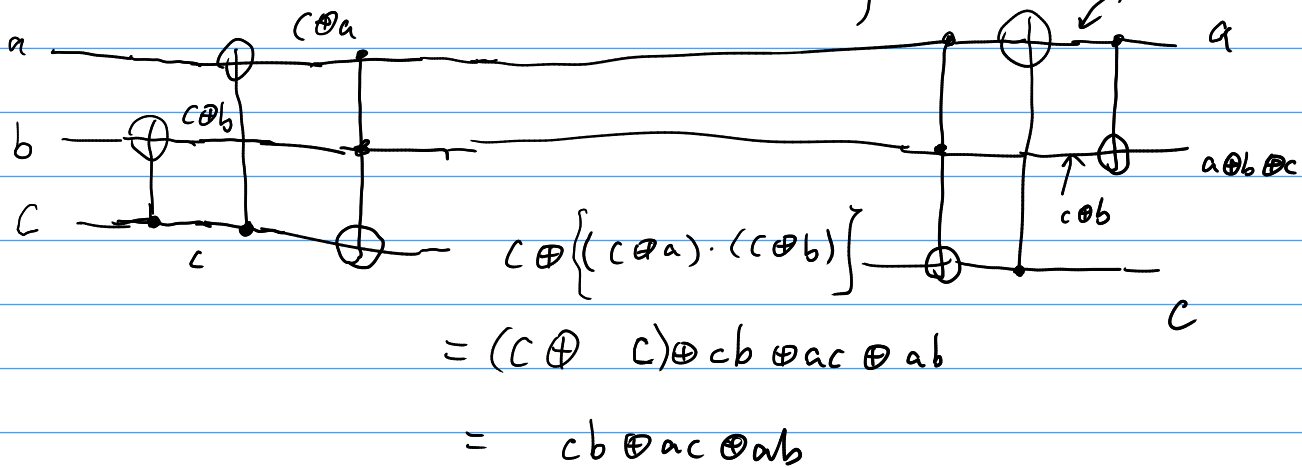 c⊕a
a
a
c⊕b
b
a⊕b⊕c
c⊕b
C
c
c⊕{(c⊕a)·(c⊕b)}
C
= (c⊕ c)⊕cb⊕ac⊕ab
= cb⊕ac⊕ab